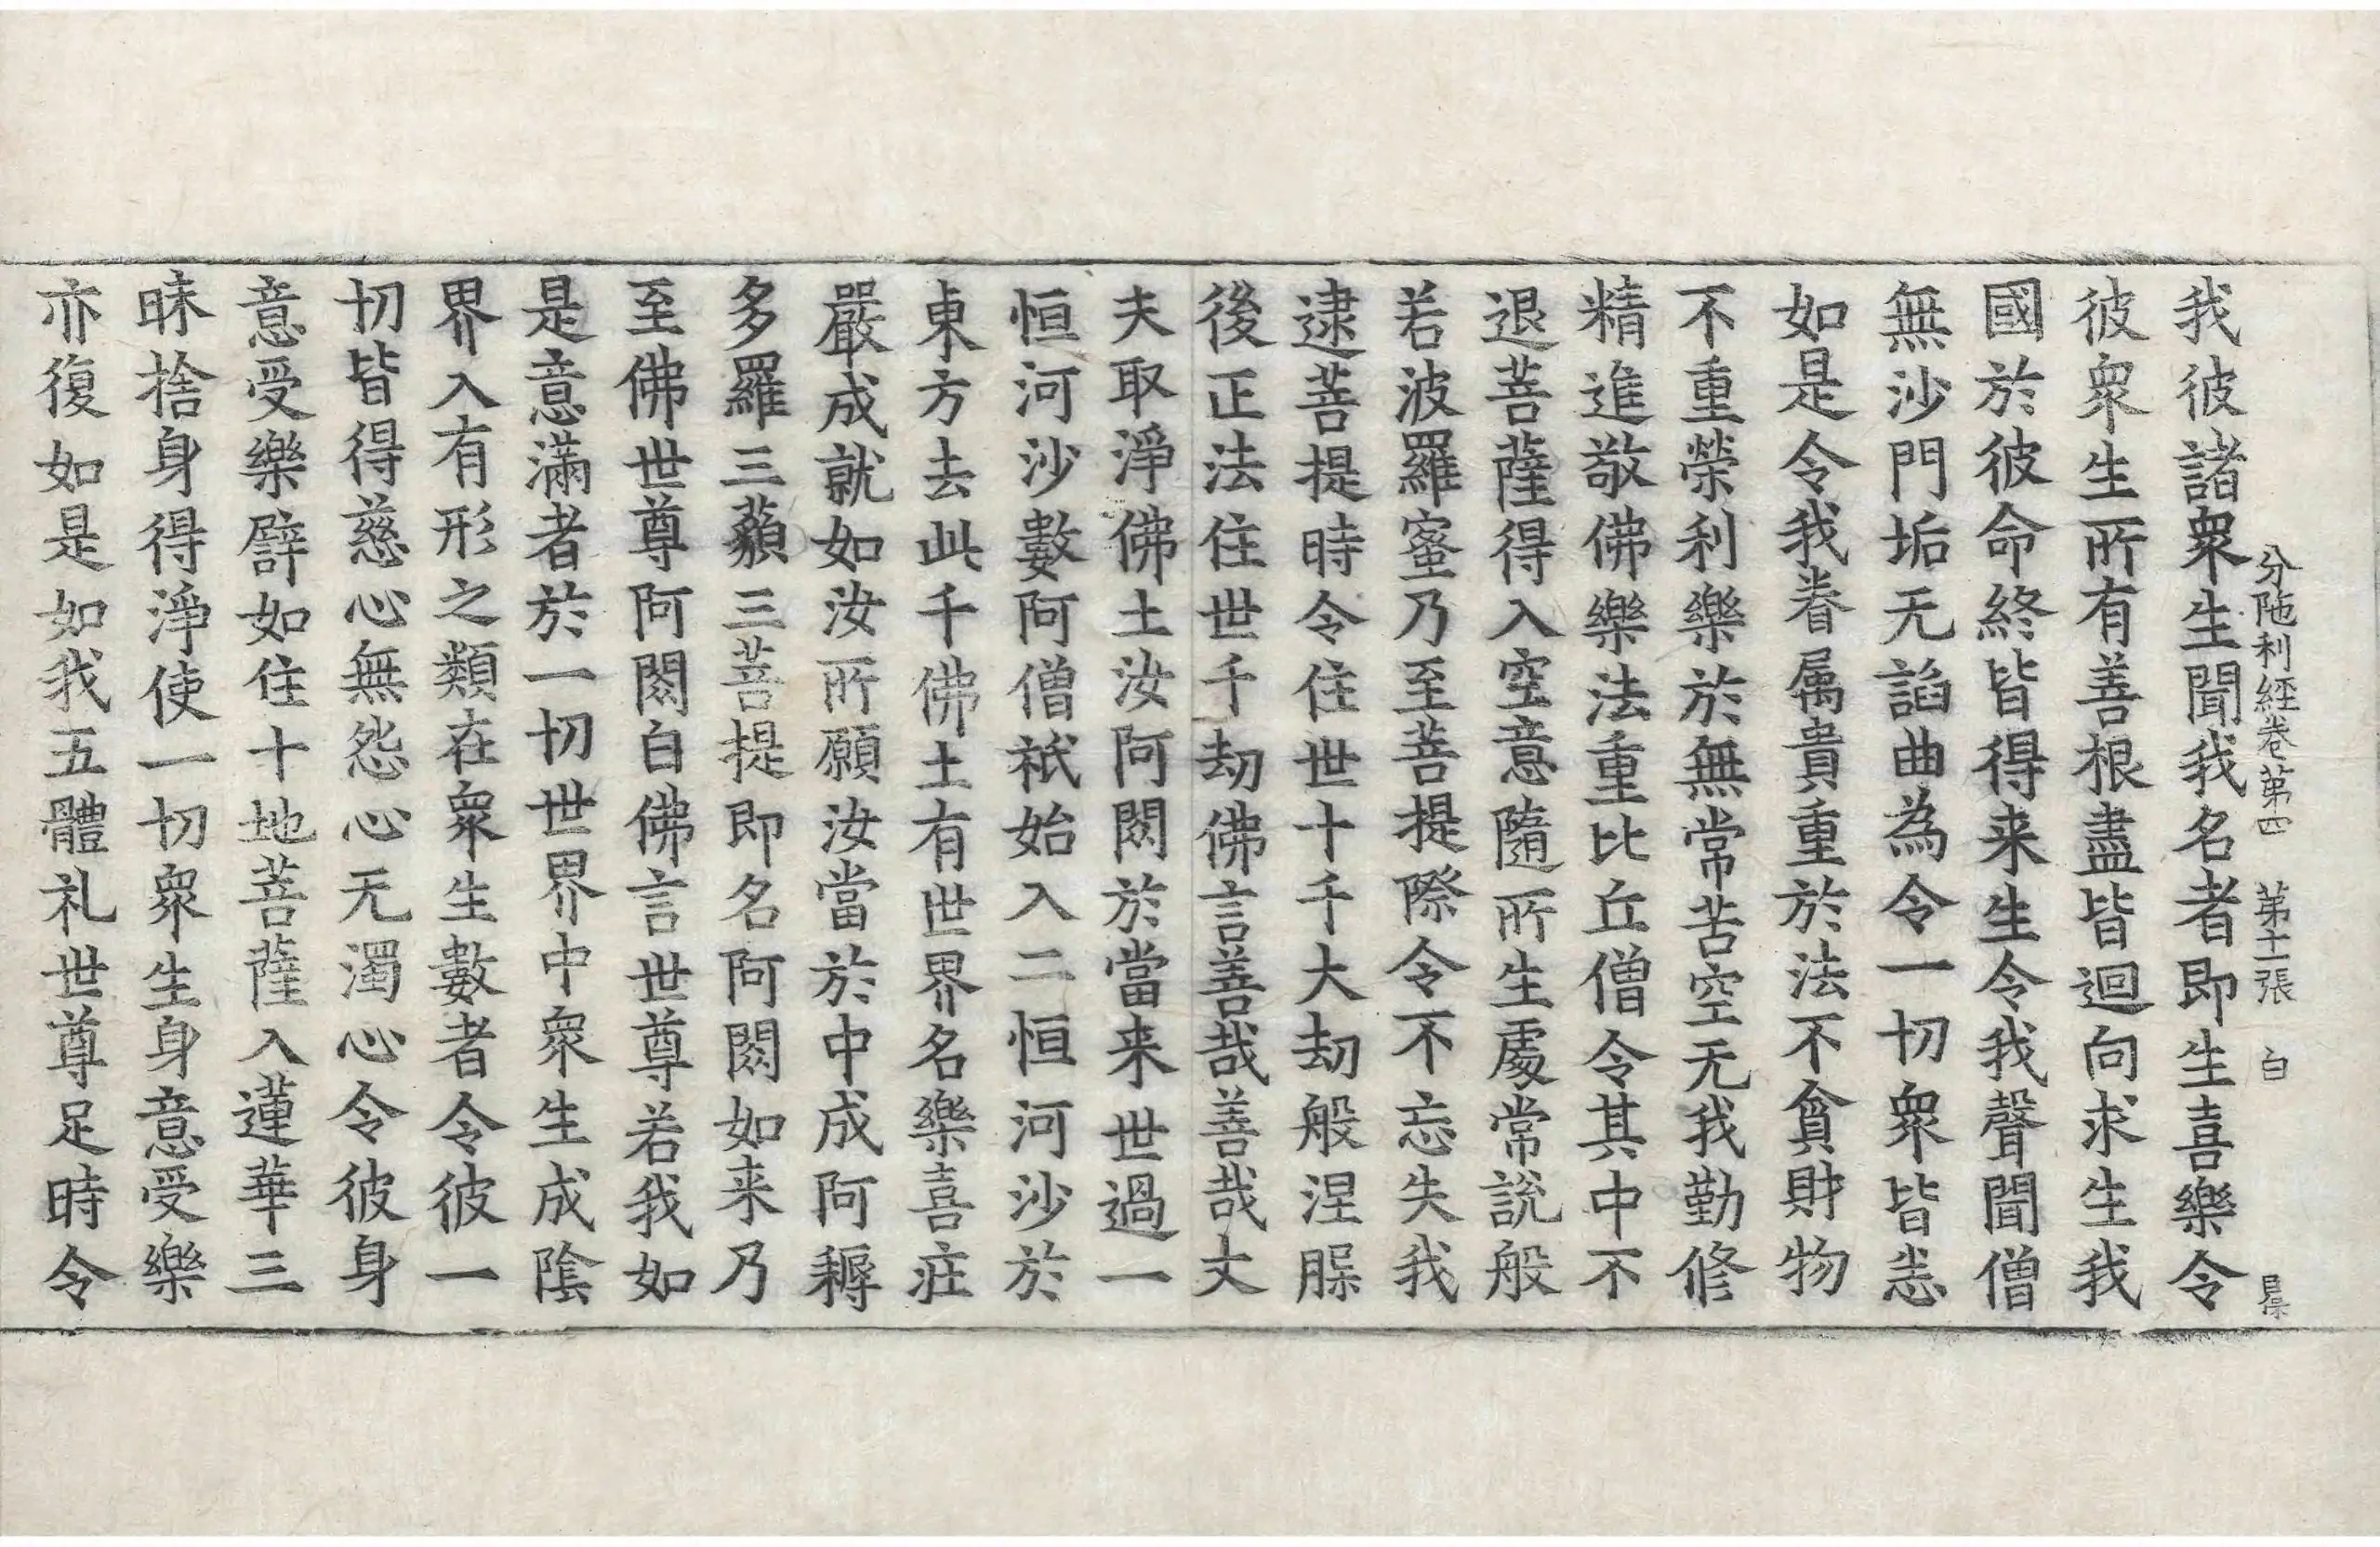 分陁利經卷第四　第十一張　白
我彼諸衆生聞我名者即生喜樂令
彼衆生所有善根盡皆迴向求生我
國於彼命終皆得来生令我聲聞僧
無沙門垢无諂曲為令一切衆皆恚
如是令我眷属貴重於法不貪財物
不重榮利樂於無常苦空无我勤修
精進敬佛樂法重比丘僧令其中不
退菩薩得入空意隨所生處常說般
若波羅蜜乃至菩提際令不忘失我
逮菩提時令住世十千大劫般涅𦞦
後正法住世千劫佛言善哉善哉丈
夫取淨佛土汝阿閦於當来世過一
恒河沙數阿僧祇始入二恒河沙於
東方去此千佛土有世界名樂喜莊
嚴成就如汝所願汝當於中成阿耨
多羅三藐三菩提即名阿閦如来乃
至佛世尊阿閦白佛言世尊若我如
是意滿者於一切世界中衆生成陰
界入有形之類在衆生數者令彼一
切皆得慈心無怨心无濁心令彼身
意受樂譬如住十地菩薩入蓮華三
昧捨身得淨使一切衆生身意受樂
亦復如是如我五體礼世尊足時令